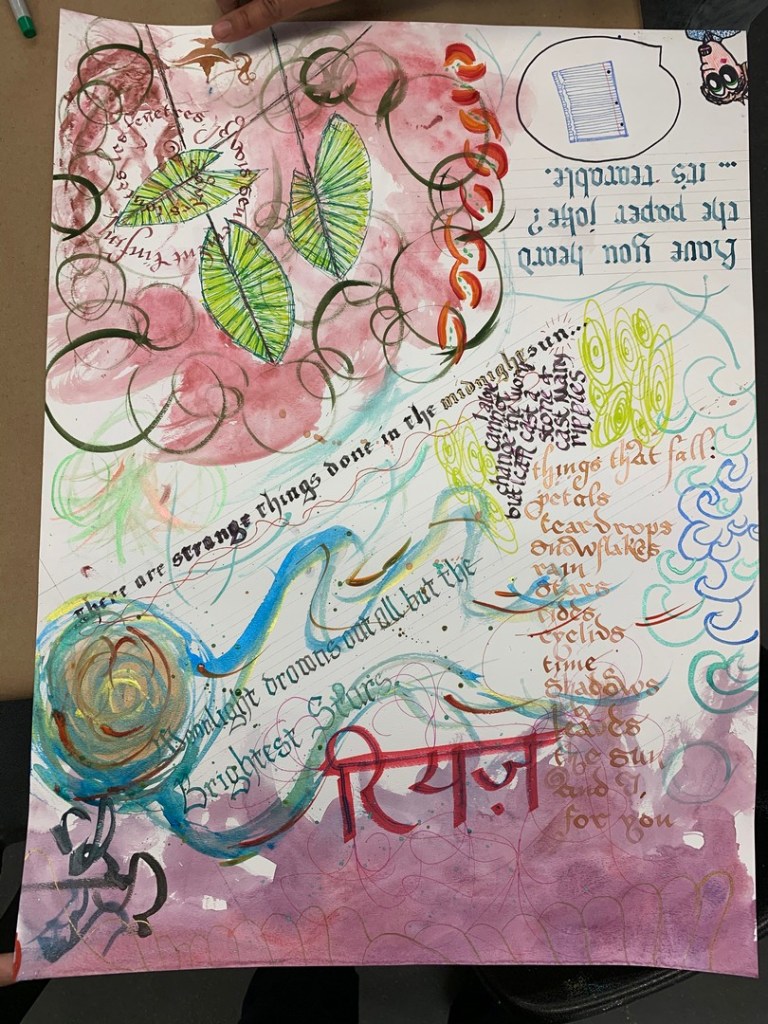 Have you heard
the paper joke?
... it's tearable.
there are strange things done in the midnight sun...
I alone
cannot
change the world
but I can cast a
stone
cast many
ripples
things that fall:
petals
teardrops
snowflakes
rain
stars
tides
eyelids
time
shadows
leaves
the sun,
and I,
for you
Moonlight drowns out all but the
Brightest Stars
रियाज़